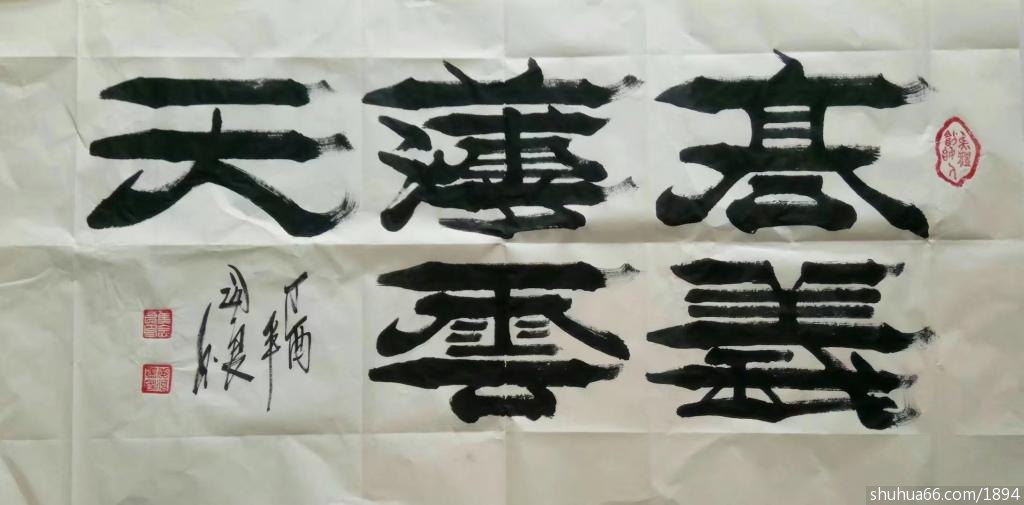 高義
薄雲
天
丁酉
shuhua66.com/1894